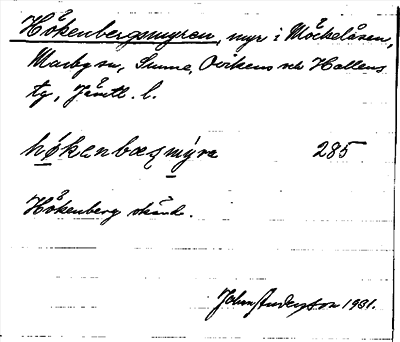 Hökenbergsmyren, myr i Möckelåsen,
Marby sn, Sunne, Ovikens och Hallens
tg, Jämtl. l.
høkenbæɽmýra 285
Hökenberg okänd.
John Anderson 1931.